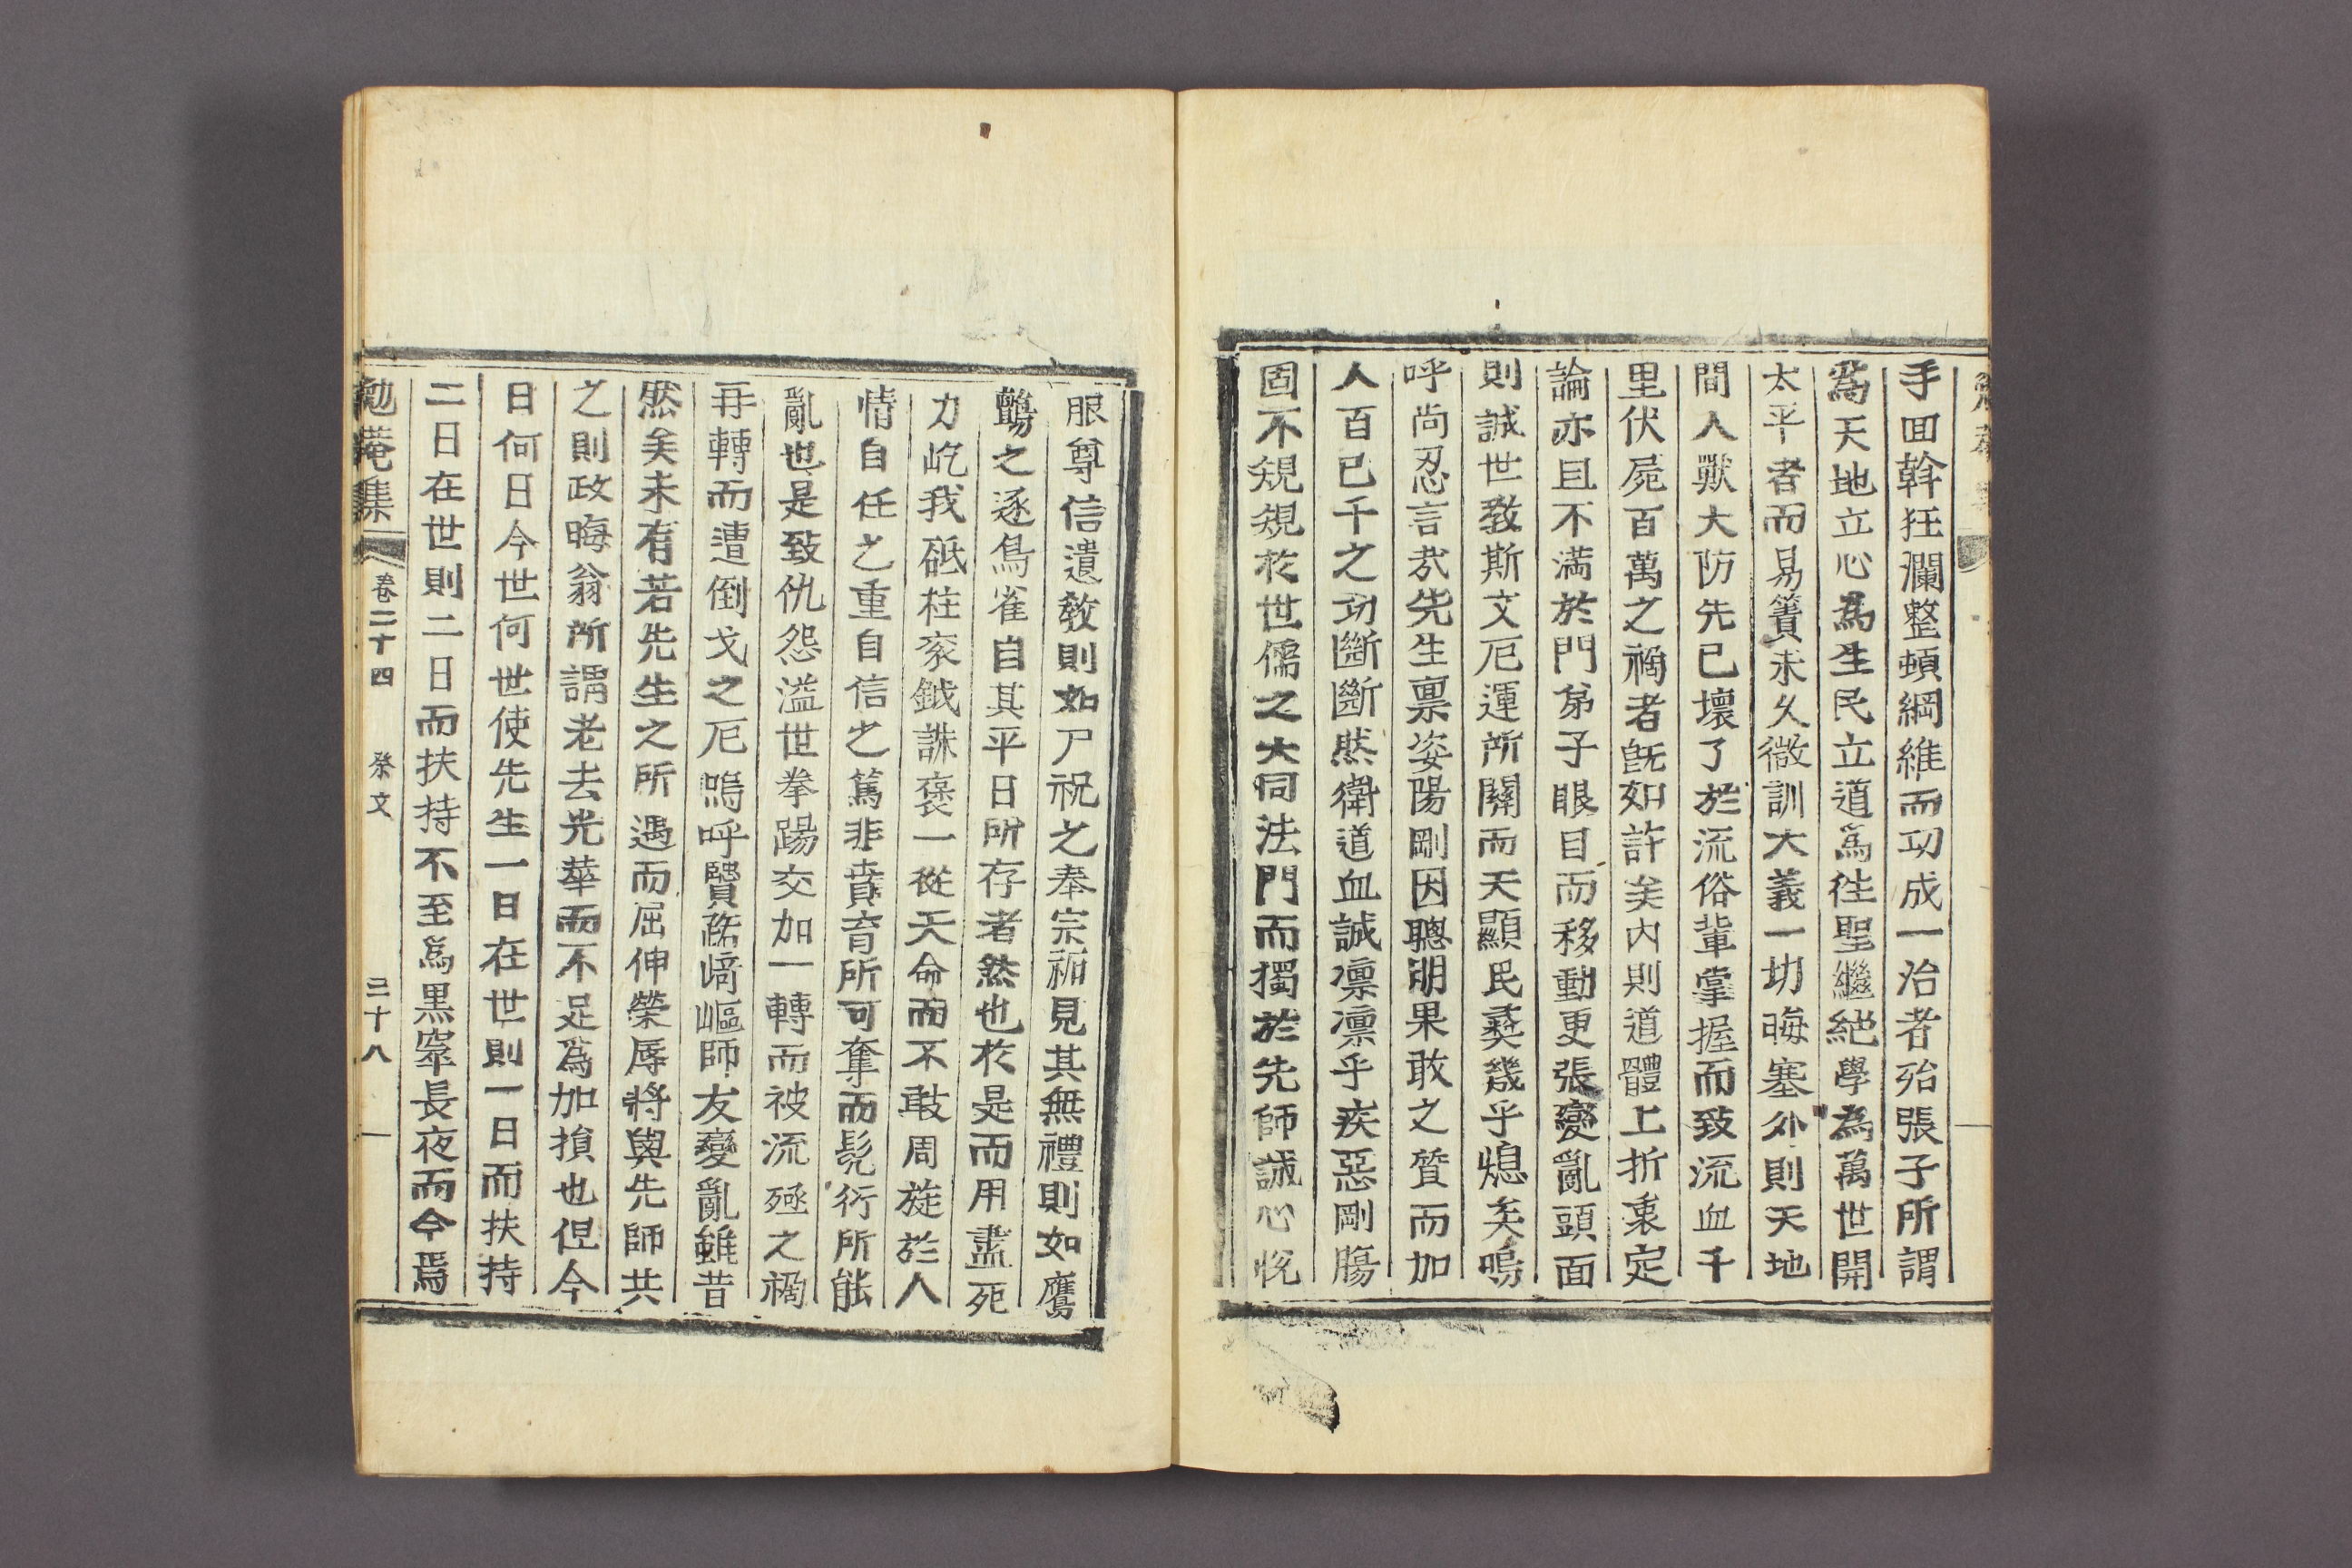 手回斡狂瀾整頓綱維而功成一治者殆張子所謂
爲天地立心爲生民立道爲徃聖繼絶學爲萬世開
太平者而易簀未久微訓大義一切晦塞外則天地
間人獸大防先已壞了於流俗輩掌握而致流血千
里伏屍百萬之禍者旣如許矣內則道體上折衷定
論亦且不滿於門弟子眼目而移動更張變亂頭面
則誠世敎斯文厄運所關而天顯民彛幾乎熄矣嗚
呼尙忍言㢤先生禀姿陽剛因聰明果敢之質而加
人百已千之功斷斷然衛道血誠凛凛乎疾惡剛膓
固不規規於世儒之大同法門而獨於先師誠心悅
服尊信遺敎則如尸祝之奉宗祏見其無禮則如鷹
鸇之逐鳥雀自其平日所存者然也於是而用盡死
力屹我砥柱衮鉞誅褒一從天命而不敢周旋於人
情自任之重自信之篤非賁育所可奪而髡衍所能
亂也是致仇怨溢世拳踢交加一轉而被流殛之禍
再轉而遭倒戈之厄嗚呼贒路﨑嶇師友變亂雖昔
然矣未有若先生之所遇而屈伸榮辱將與先師共
之則政晦翁所謂老去光華而不足爲加損也但今
日何日今世何世使先生一日在世則一日而扶持
二日在世則二日而扶持不至爲黑窣長夜而今焉
勉菴集 卷二十四 祭文 三十八